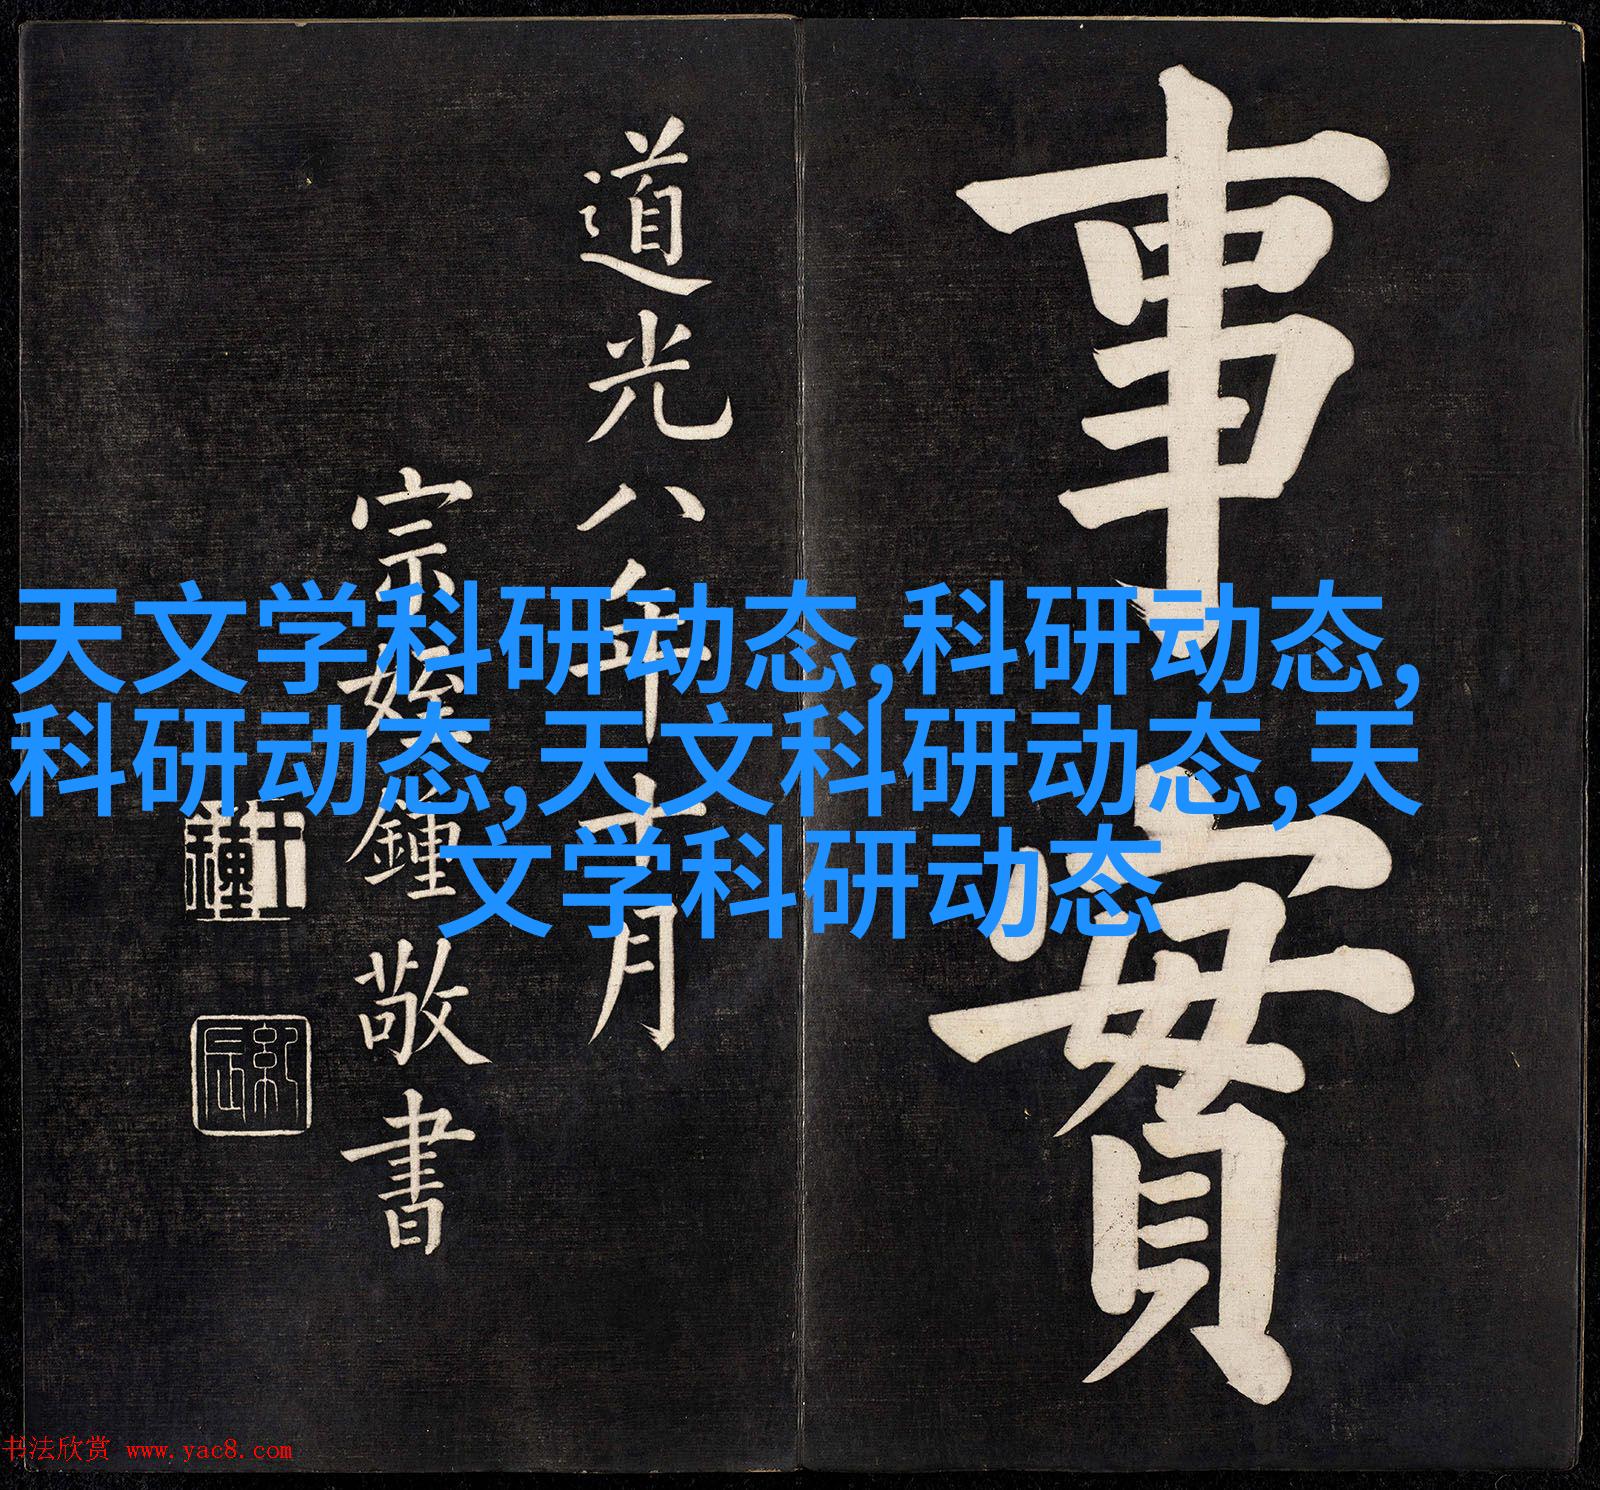 事實
道光八年十月
宗姪鍾敬書
天文学科研动态,科研动态,
科研动态,天文科研动态,天
文学科研动态
书法欣赏 www.yac8.com